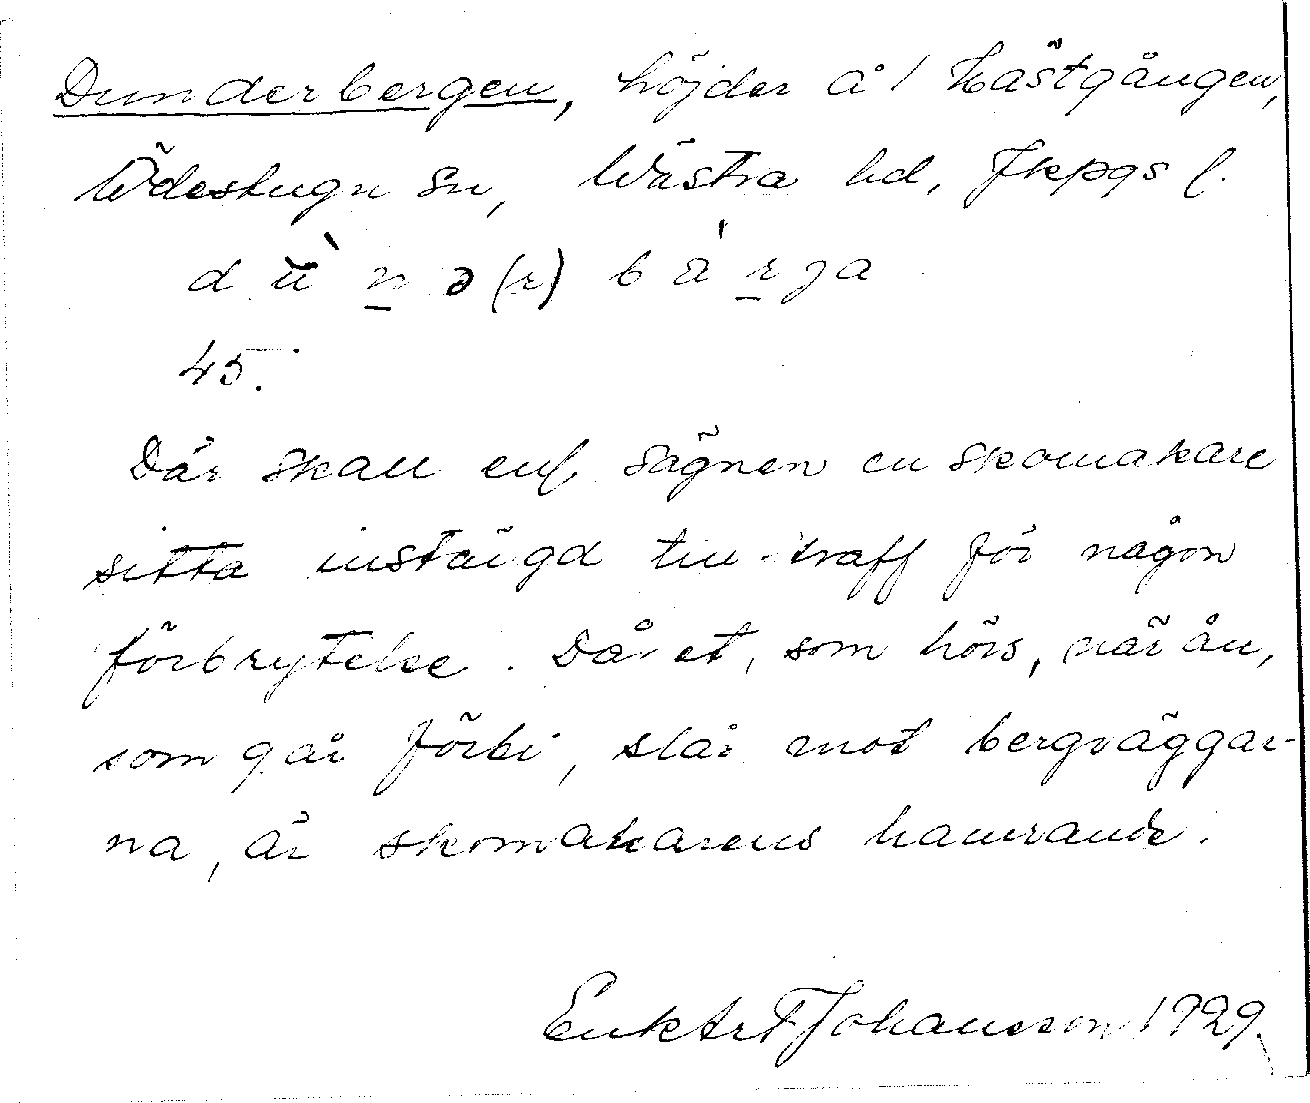 Dunderbergen, höjder å / Hästgången,
Ödestugu sn, Västra hd, Jkpgs l.
d ù n ə (r) b ä́ r j a
45.
Där skall enl. sägnen en skomakare
sitta instängd till straff för någon
förbrytelse. Dånet, som hörs, när ån,
som går förbi, slår mot bergväggar-
na, är skomakarens hamrande.
Enl Art F Johansson 1929.